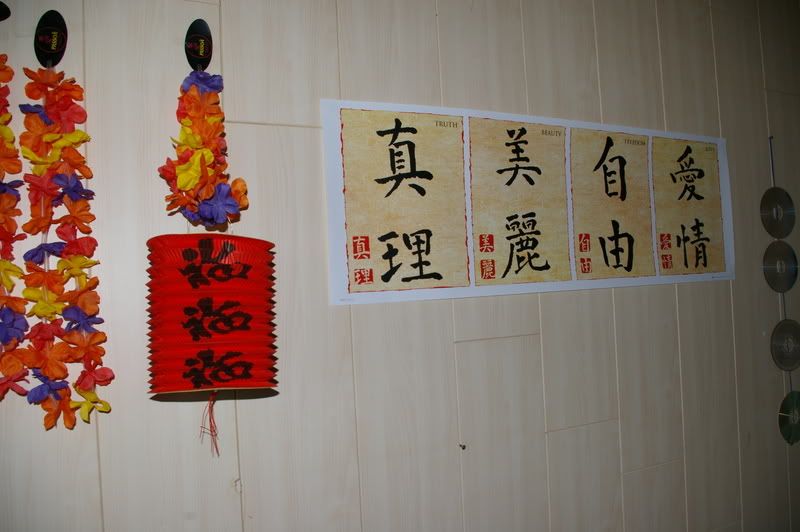 TRUTH
真理
真理
BEAUTY
美麗
美麗
FREEDOM
自由
自由
LOVE
愛情
愛情